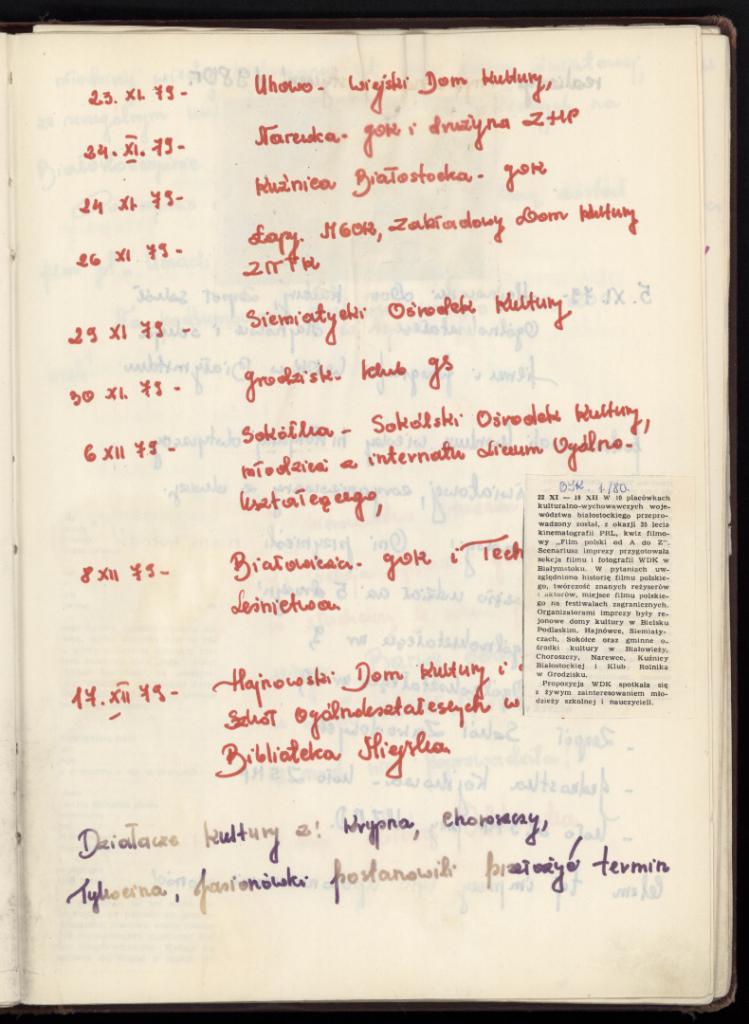 23. XI. 79 - Uhowo - Wiejski Dom Kultury,
24. XI. 79 - Narewka - GOK i drużyna ZHP
24 XI. 79 - Kuźnica Białostocka - GOK
26 XI 79 - Łapy. MGOK, Zakładowy Dom Kultury
ZNTK
29 XI 79 - Siemiatycki Ośrodek Kultury
30 XI. 79 - Grodzisk - Klub GS
6 XII 79 - Sokółka - Sokólski Ośrodek Kultury,
młodzież z internatu Liceum Ogólno-
kształcącego,
8 XII 79 - Białowieża - GOK i Tech
Leśnictwa
17. XII 79 - Hajnowski Dom Kultury i
Szkół Ogólnokształcących w
Biblioteka Miejska
Działacze kultury z: Krypna, Choroszczy,
Tykocina, Jasionówki postanowili przełożyć termin
1/80.
22 XI — 18 XII W 10 placówkach
kulturalno-wychowawczych woje-
wództwa białostockiego przepro-
wadzony został, z okazji 35 lecia
kinematografii PRL, kwiz filmo-
wy „Film polski od A do Z”.
Scenariusz imprezy przygotowała
sekcja filmu i fotografii WDK w
Białymstoku. W pytaniach uw-
zględniono historię filmu polskie-
go, twórczość znanych reżyserów
i aktorów, miejsce filmu polskie-
go na festiwalach zagranicznych.
Organizatorami imprezy były re-
jonowe domy kultury w Bielsku
Podlaskim, Hajnówce, Siemiaty-
czach, Sokółce oraz gminne o-
środki kultury w Białowieży,
Choroszczy, Narewce, Kuźnicy
Białostockiej i Klub Rolnika
w Grodzisku.
Propozycja WDK spotkała się
z żywym zainteresowaniem mło-
dzieży szkolnej i nauczycieli.